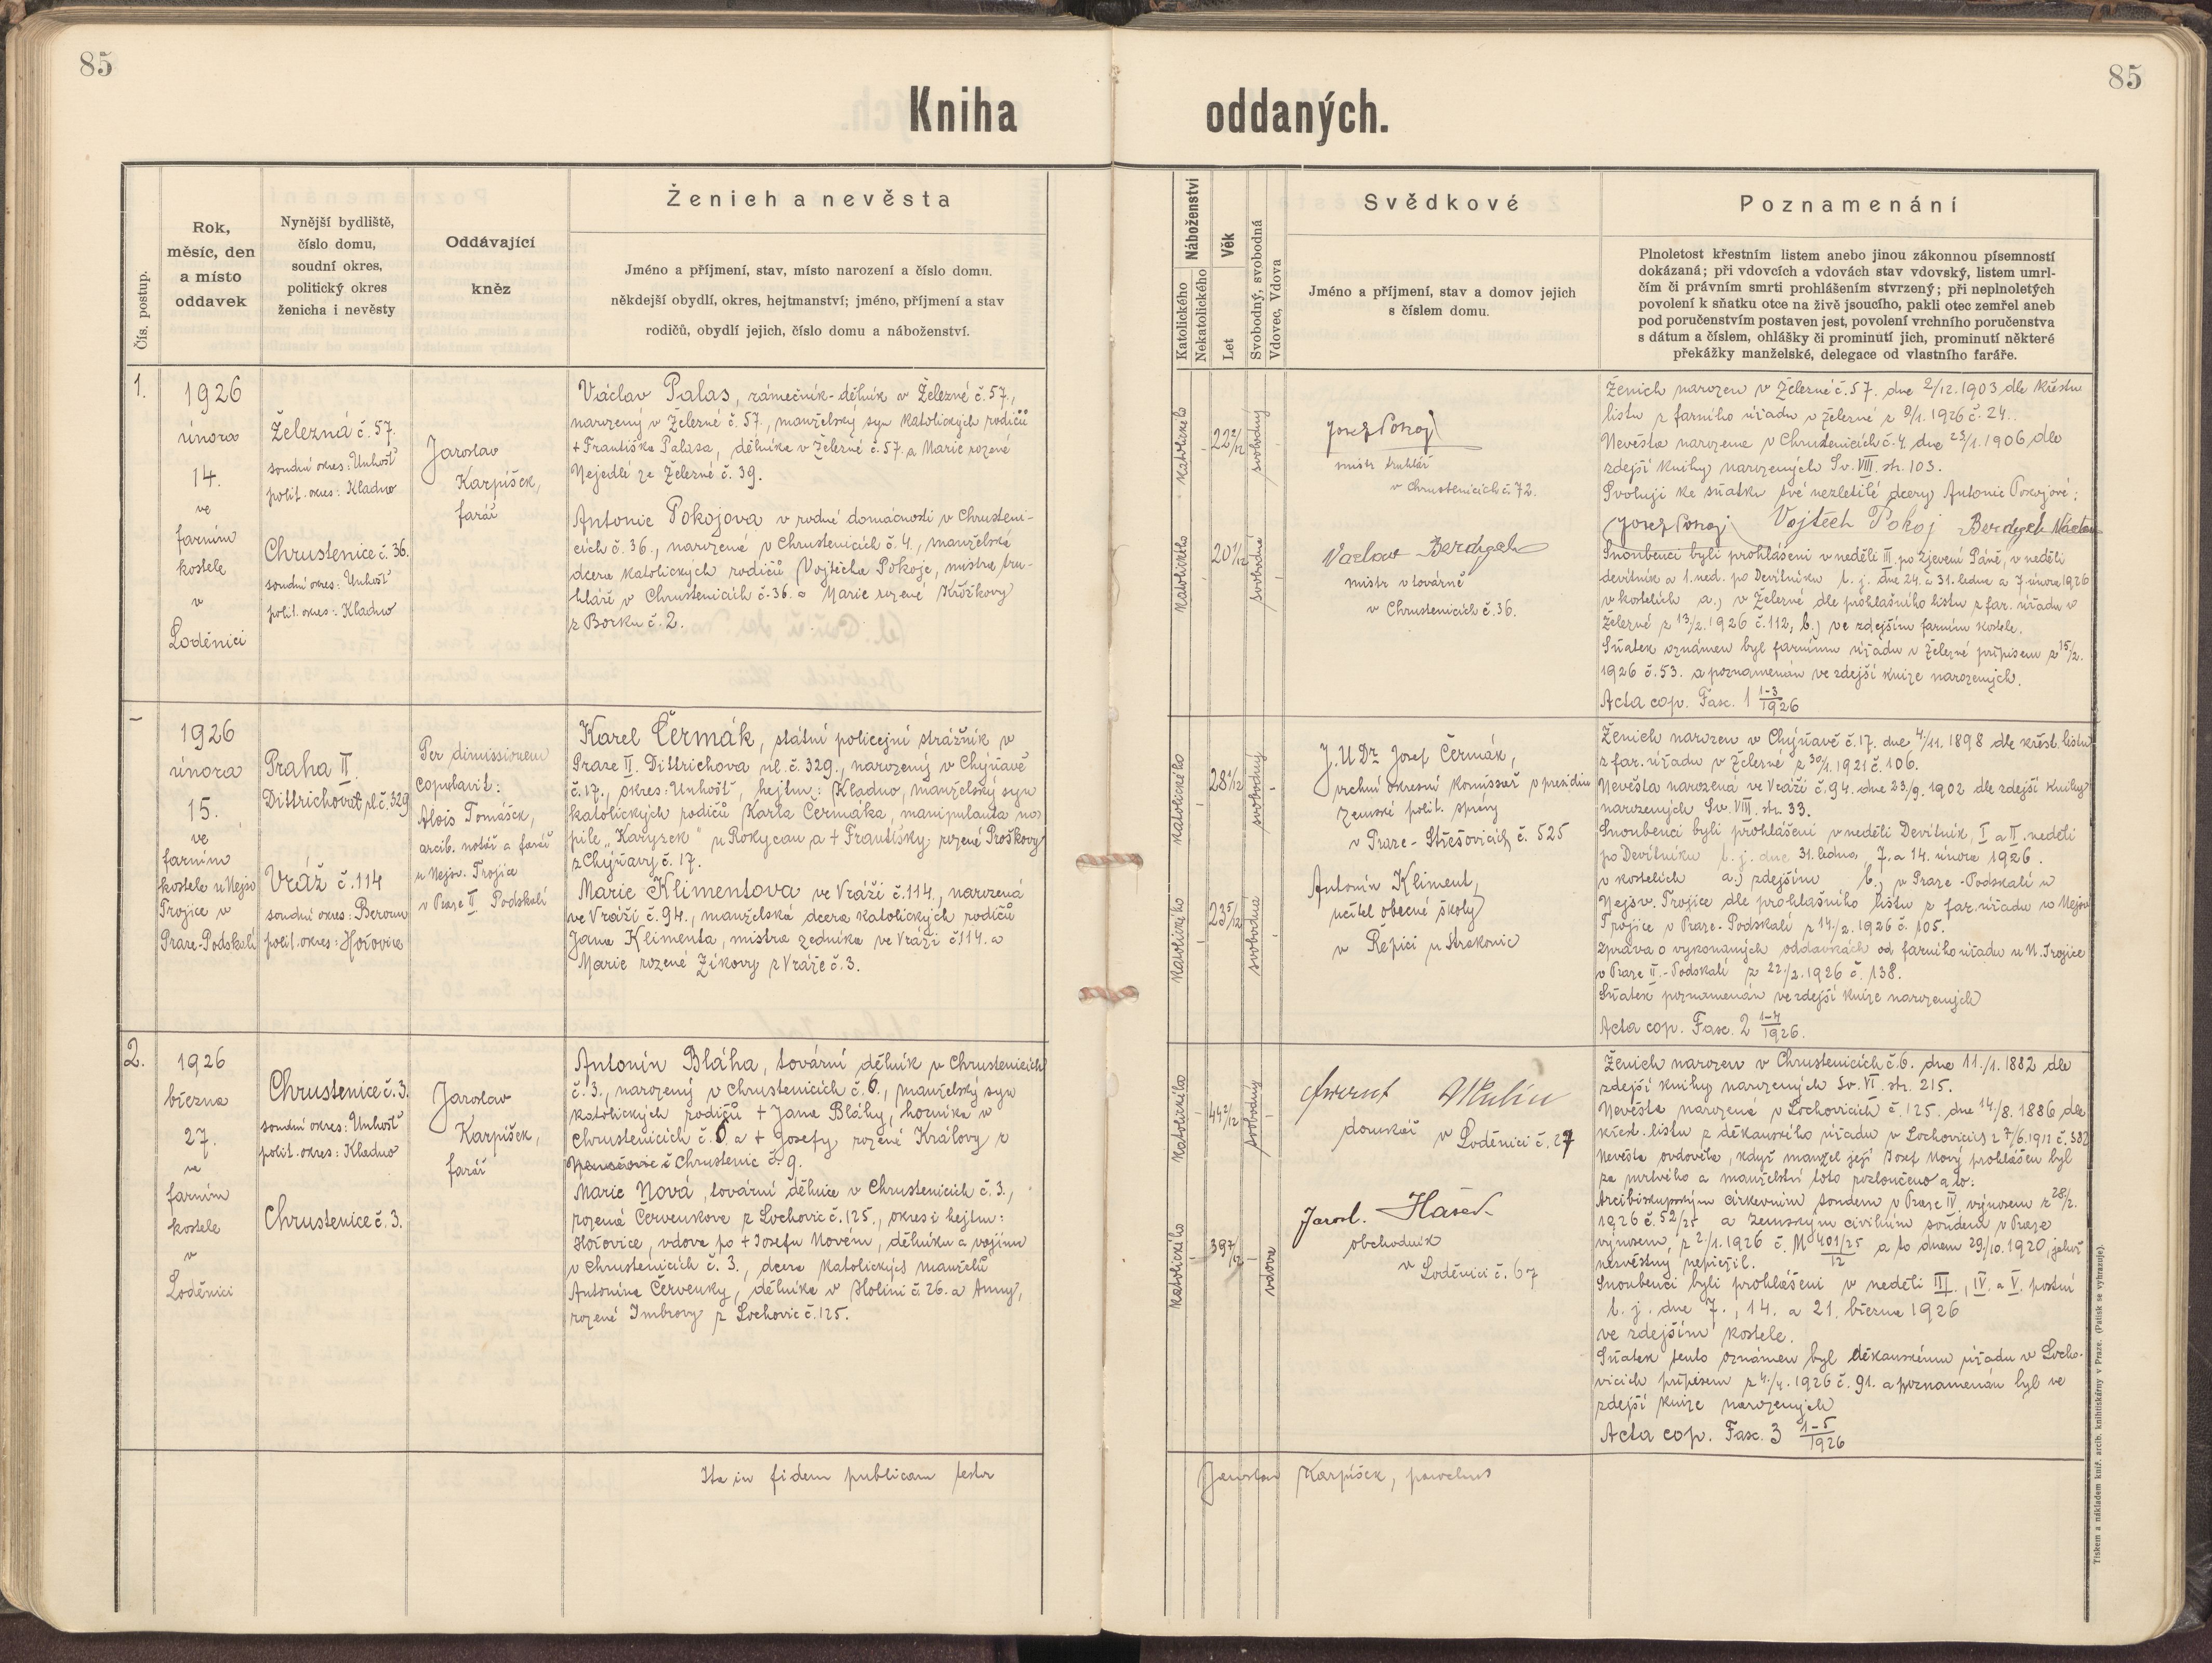 85
85
Kniha oddaných.
Čís. postup.
Rok,
měsíc, den
a místo
oddavek
Nynější bydliště,
číslo domu,
soudní okres,
politický okres
ženicha i nevěsty
Oddávající
kněz
Ženich a nevěsta
Jméno a příjmení, stav, místo narození a číslo domu.
někdejší obydlí, okres, hejtmanství; jméno, příjmení a stav
rodičů, obydlí jejich, číslo domu a náboženství.
Náboženství
Katolického
Nekatolického
Věk
Let
Svobodný, svobodná
Vdovec, Vdova
Svědkové
Jméno a příjmení, stav a domov jejich
s číslem domu.
Poznamenání
Plnoletost křestním listem anebo jinou zákonnou písemností
dokázaná; při vdovcích a vdovách stav vdovský, listem umrl-
čím či právním smrti prohlášením stvrzený; při neplnoletých
povolení k sňatku otce na živě jsoucího, pakli otec zemřel aneb
pod poručenstvím postaven jest, povolení vrchního poručenstva
s dátum a číslem, ohlášky či prominutí jich, prominutí některé
překážky manželské, delegace od vlastního faráře.
1.
1926
února
14.
ve
farním
kostele
v
Loděnici
Železná č. 57.
soudní okres: Unhošť
polit. okres: Kladno
Chrustenice č. 36.
soudní okres: Unhošť
polit. okres: Kladno
Jaroslav
Karpíšek,
farář
Václav Palas, zámečník-dělník v Železné č. 57.,
narozený v Železné č. 57., manželský syn katolických rodičů
+ Františka Palasa, dělníka v Železné č. 57. a Marie rozené
Nejedlé ze Železné č. 39.
Antonie Pokojova v rodné domácnosti v Chrusteni-
cích č. 36., narozená v Chrustenicích č. 4., manželská
dcera katolických rodičů Vojtěcha Pokoje, mistra tru-
hláře v Chrustenicích č. 36. a Marie rozené Křížkovy
z Borku č. 2.
katolického
22 2/12
svobodný
katolického
20 1/12
svobodná
Josef Pokoj
mistr truhlář
v Chrustenicích č. 72.
Vaclav Berdych
mistr v továrně
v Chrustenicích č. 36.
Ženich narozen v Železné č. 57. dne 2/12. 1903 dle křestn.
listu z farního úřadu v Železné z 9/1. 1926 č. 24.
Nevěsta narozena v Chrustenicích č. 4. dne 23/1. 1906 dle
zdejší knihy narozených Sv. VIII. str. 103.
Svoluji ke sňatku své nezletilé dcery Antonie Pokojové:
Josef Pokoj Vojtěch Pokoj Berdych Václav
Snoubenci byli prohlášeni v neděli III. po Zjevení Páně, v neděli
devítník a 1. ned. po Devítníku t. j. dne 24. a 31. ledna a 7. února 1926
v kostelích a.) v Železné dle prohlašního listu z far. úřadu v
Železné z 13/2. 1926 č. 112, b.) ve zdejším farním kostele.
Sňatek oznámen byl farnímu úřadu v Železné přípisem z 15/2.
1926 č. 53. a poznamenán ve zdejší knize narozených.
Acta cop. Fasc. 1 1-3/1926
–
1926
února
15.
ve
farním
kostele u Nejsv.
Trojice v
Praze-Podskalí
Praha II.
Dittrichova ul. č. 329
Vráž č. 114
soudní okres: Beroun
polit. okres: Hořovice
Per dimissionem
copulavit:
Alois Tomášek,
arcib. notář a farář
u Nejsv. Trojice
v Praze II. Podskalí
Karel Čermák, státní policejní strážník v
Praze II. Dittrichova ul. č. 329., narozený v Chýňavě
č. 17., okres: Unhošť, hejtm: Kladno, manželský syn
katolických rodičů Karla Čermáka, manipulanta na
pile „Karyzek" u Rokycan a + Františky, rozené Proškovy
z Chýňavy č. 17.
Marie Klimentova ve Vráži č. 114., narozená
ve Vráži č. 94., manželská dcera katolických rodičů
Jana Klimenta, mistra zedníka ve Vráži č. 114. a
Marie rozené Zíkovy z Vráže č. 3.
katolického
svobodný
katolického
23 5/12
svobodna
J. U Dr. Josef Čermák,
vrchní okresní komisař v presidiu
zemské polit. správy
v Praze - Střešovicích č. 525
Antonín Kliment,
učitel obecné školy
v Řepici u Strakonic
Ženich narozen v Chýňavě č. 17. dne 4/11. 1898 dle křest. listu
z far. úřadu v Železné z 30/1. 1921 č. 106.
Nevěsta narozená ve Vráži č. 94. dne 23/9. 1902 dle zdejší knihy
narozených Sv. VIII. str. 33.
Snoubenci byli prohlášeni v neděli Devítník, I. a II. neděli
po Devítníku t. j. dne 31. ledna, 7. a 14. února 1926.
v kostelích a.) zdejším b.) v Praze - Podskalí u
Nejsv. Trojice dle prohlašního listu z far. úřadu u Nejsv.
Trojice v Praze - Podskalí z 14/2. 1926 č. 105.
Zpráva o vykonaných oddavkách od farního úřadu u N. Trojice
v Praze II. - Podskalí z 22/2. 1926 č. 138.
Sňatek poznamenán ve zdejší knize narozených
Acta cop. Fasc. 2 1-4/1926.
2.
1926
března
27.
ve
farním
kostele
v
Loděnici
Chrustenice č. 3.
soudní okres: Unhošť
polit. okres: Kladno
Chrustenice č. 3.
Jaroslav
Karpíšek,
farář
Antonín Bláha, tovární dělník v Chrustenicích
č. 3., narozený v Chrustenicích č. 6., manželský syn
katolických rodičů + Jana Bláhy, horníka v
Chrustenicích č. 6 a + Josefy, rozené Královy z
Chrustenic č. 9.
Marie Nová, tovární dělnice v Chrustenicích č. 3.,
rozená Červenkova z Lochovic č. 125., okres i hejtm:
Hořovice, vdova po + Josefu Novém, dělníku a vojínu
v Chrustenicích č. 3., dcera katolických manželů
Antonína Červenky, dělníka v Holini č. 26. a Anny,
rozené Imbrovy z Lochovic č. 125.
katolického
44 2/12
svobodný
katolického
39 7/12
vdova
domkář v Loděnici č. 27
Jarosl. Hašek
obchodník
v Loděnici č. 67
Ženich narozen v Chrustenicích č. 6. dne 11./1. 1882 dle
zdejší knihy narozených Sv. VI. str. 215.
Nevěsta narozená v Lochovicích č. 125. dne 14/8. 1886 dle
křest. listu z děkanského úřadu v Lochovicích z 7/6. 1912 č. 382
Nevěsta ovdověla, když manžel její Josef Nový prohlášen byl
za mrtvého a manželství toto rozloučeno a to:
Arcibiskupským církevním soudem v Praze IV. výnosem z 28/2.
1926 č. 52/25 a Zemským civilním soudem v Praze
výnosem z 2/1. 1926 č. M 401/25/12 a to dnem 29./10. 1920, jehož
nezvěstný nepřežil.
Snoubenci byli prohlášeni v neděli III., IV. a V. postní
t. j. dne 7., 14. a 21. března 1926
ve zdejším kostele.
Sňatek tento oznámen byl děkanskému úřadu v Locho-
vicích přípisem z 4./4. 1926 č. 91. a poznamenán byl ve
zdejší knize narozených
Acta cop. Fasc. 3 1-5/1926
Ita in fidem publicam testor
Jaroslav Karpíšek, parochus
Tiskem a nákladem kníž. arcib. knihtiskárny v Praze. (Patisk se vyhrazuje).